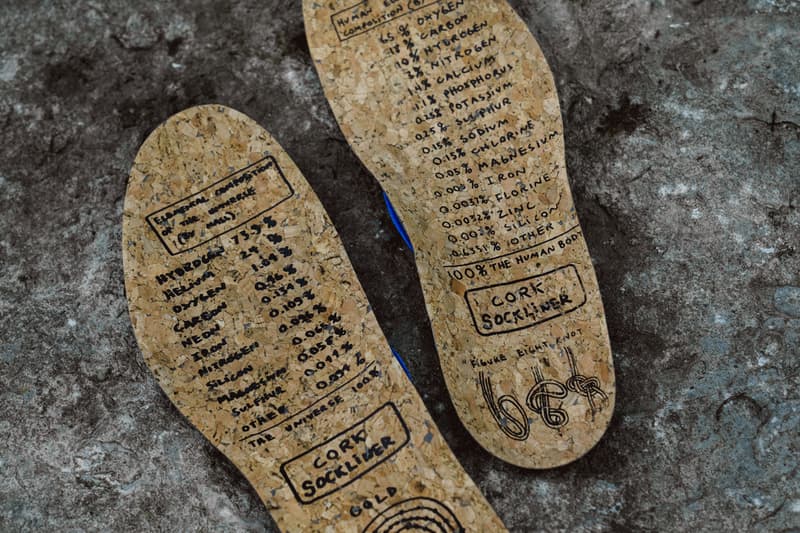 ELEMENTAL COMPOSITION
OF THE UNIVERSE
(BY MASS)
HYDROGEN 73.9%
HELIUM
OXYGEN 1.04%
CARBON 0.46%
NEON 0.134%
IRON 0.109%
NITROGEN
SILICON
MAGNESIUM
SULFUR
OTHER
THE UNIVERSE 100%
CORK
SOCKLINER
GOLD
HUMAN
COMPOSITION
65% OXYGEN
18% CARBON
10% HYDROGEN
3% NITROGEN
CALCIUM
PHOSPHORUS
0.25% POTASSIUM
0.25% SULPHUR
0.15% SODIUM
0.15% CHLORINE
0.05% MAGNESIUM
IRON
0.0037% FLORINE
0.0032% ZINC
0.002% SILICON
0.6351% OTHER
100% THE HUMAN BODY
CORK
SOCKLINER
FIGURE EIGHT KNOT